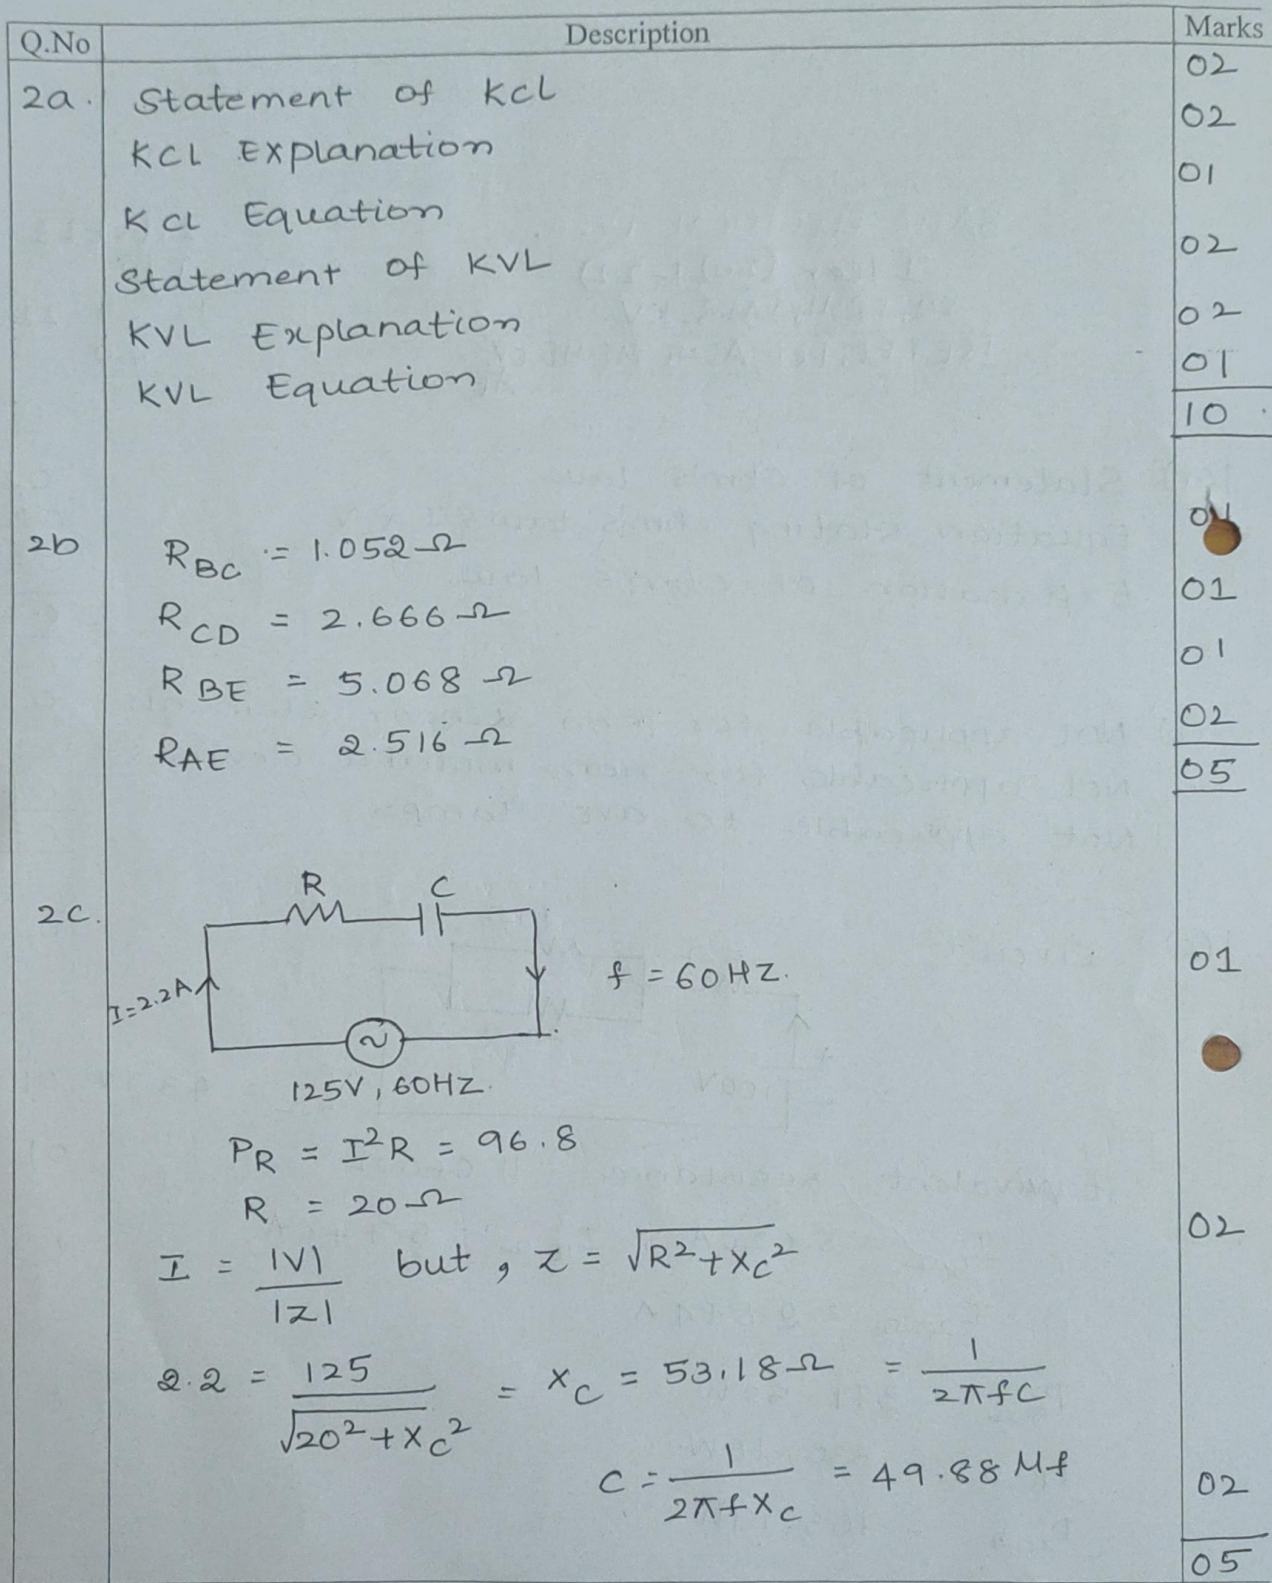 Q.No Description Marks
02
2a. Statement of KCL
KCL Explanation 02
KCL Equation 01
Statement of KVL 02
KVL Explanation 02
KVL Equation 01
10
2b R_BC = 1.052 Ω
R_CD = 2.666 Ω 01
R_BE = 5.068 Ω 01
R_AE = 2.516 Ω 02
05
2C. R C
I=2.2A f = 60HZ. 01
125V, 60HZ.
P_R = I²R = 96.8
R = 20Ω
I = |V|/|Z| but, Z = √(R²+X_C²) 02
2.2 = 125/√(20²+X_C²) = X_C = 53.18Ω = 1/(2πfC)
C = 1/(2πfX_C) = 49.88 Mf 02
05